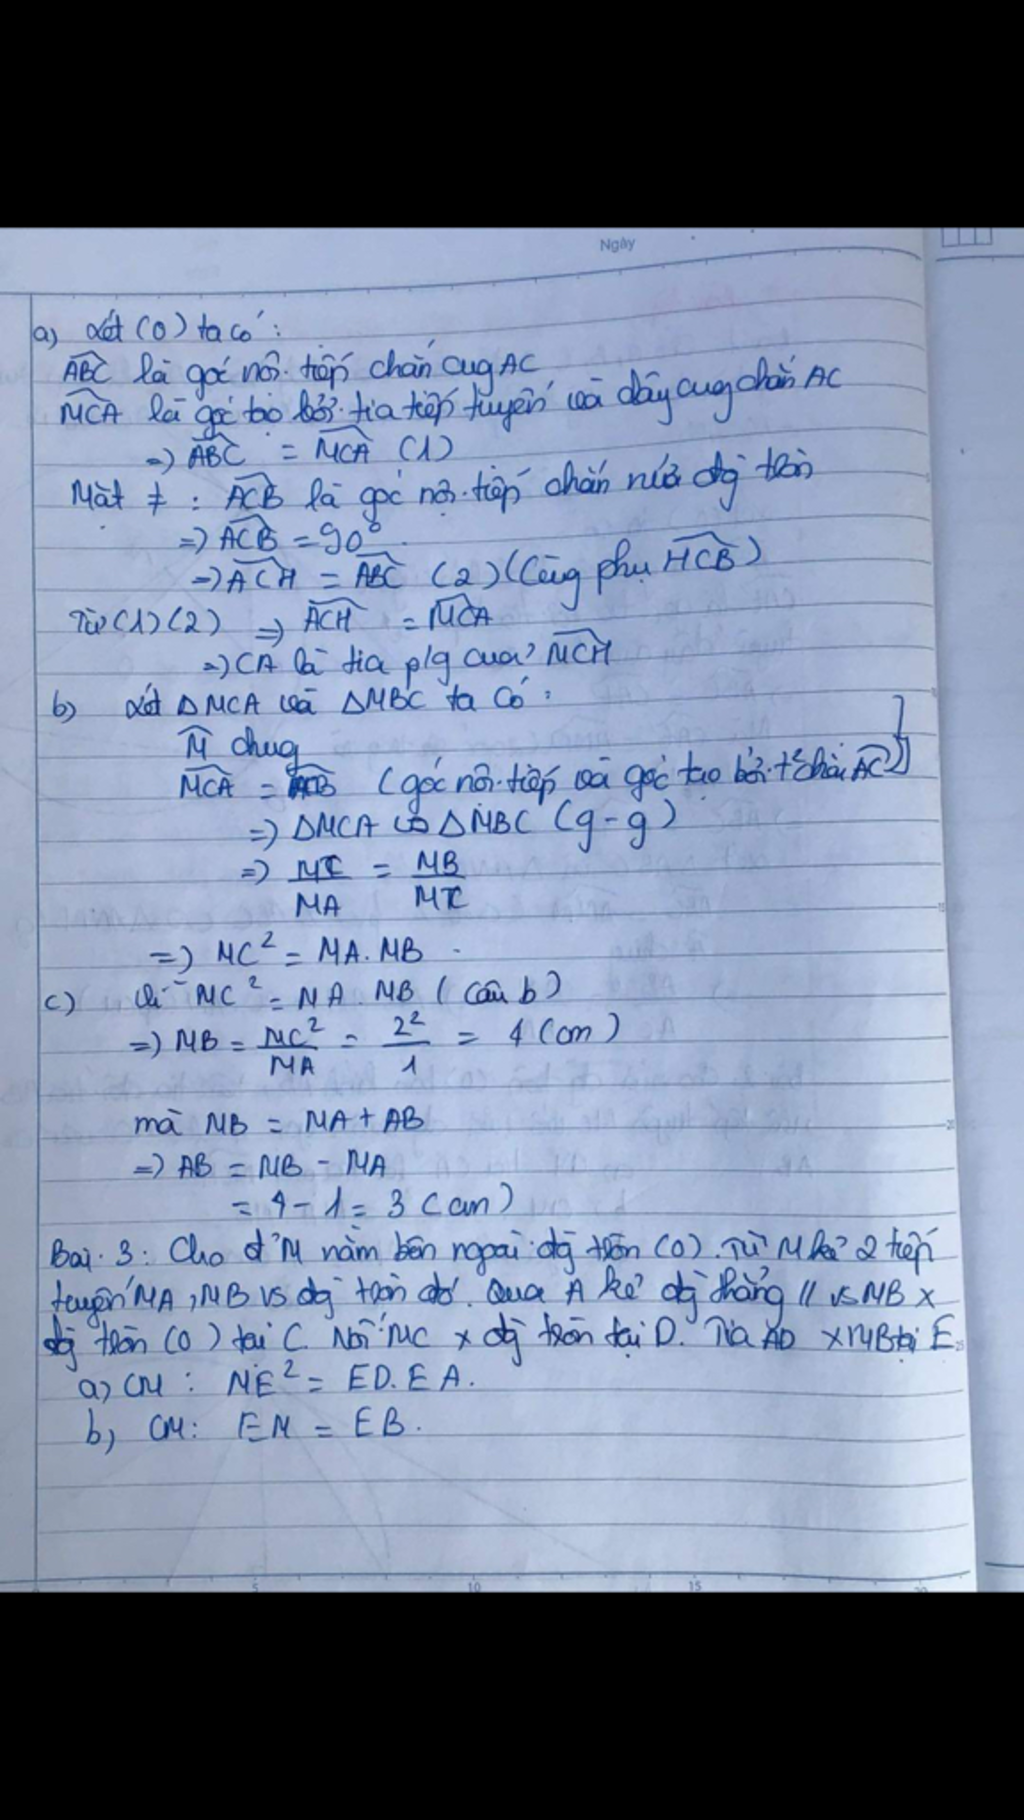 Ngày
a) Xét (O) ta có:
ABC là góc nội tiếp chắn cug AC
MCA là góc tạo bởi tia tiếp tuyến và dây cug chắn AC
=> ABC = MCA (1)
Mặt ≠ : ACB là góc nội tiếp chắn nửa đg tròn
=> ACB = 90°
=> ACH = ABC (2) (Cùng phụ HCB)
Từ (1) (2) => ACH = MCA
=> CA là tia p/g của MCH
b) Xét △MCA và △MBC ta có:
M chug
MCA = (góc nội tiếp và góc tạo bởi t² chắn AC)
=> △MCA ∽ △MBC (g-g)
=> MC/MA = MB/MC
=> MC² = MA.MB
c) Vì MC² = MA.MB (câu b)
=> MB = MC²/MA = 2²/1 = 4 (cm)
mà MB = MA + AB
=> AB = MB - MA
= 4 - 1 = 3 (cm)
Bài 3: Cho đ' M nằm bên ngoài đg tròn (O). Từ M kẻ 2 tiếp
tuyến MA, MB vs đg tròn đó. Qua A kẻ đg thẳng // vs MB x
đg tròn (O) tại C. Nối MC x đg tròn tại D. Tia AD x MB tại E
a) CM: ME² = ED.EA.
b) CM: EM = EB.
5 10 15